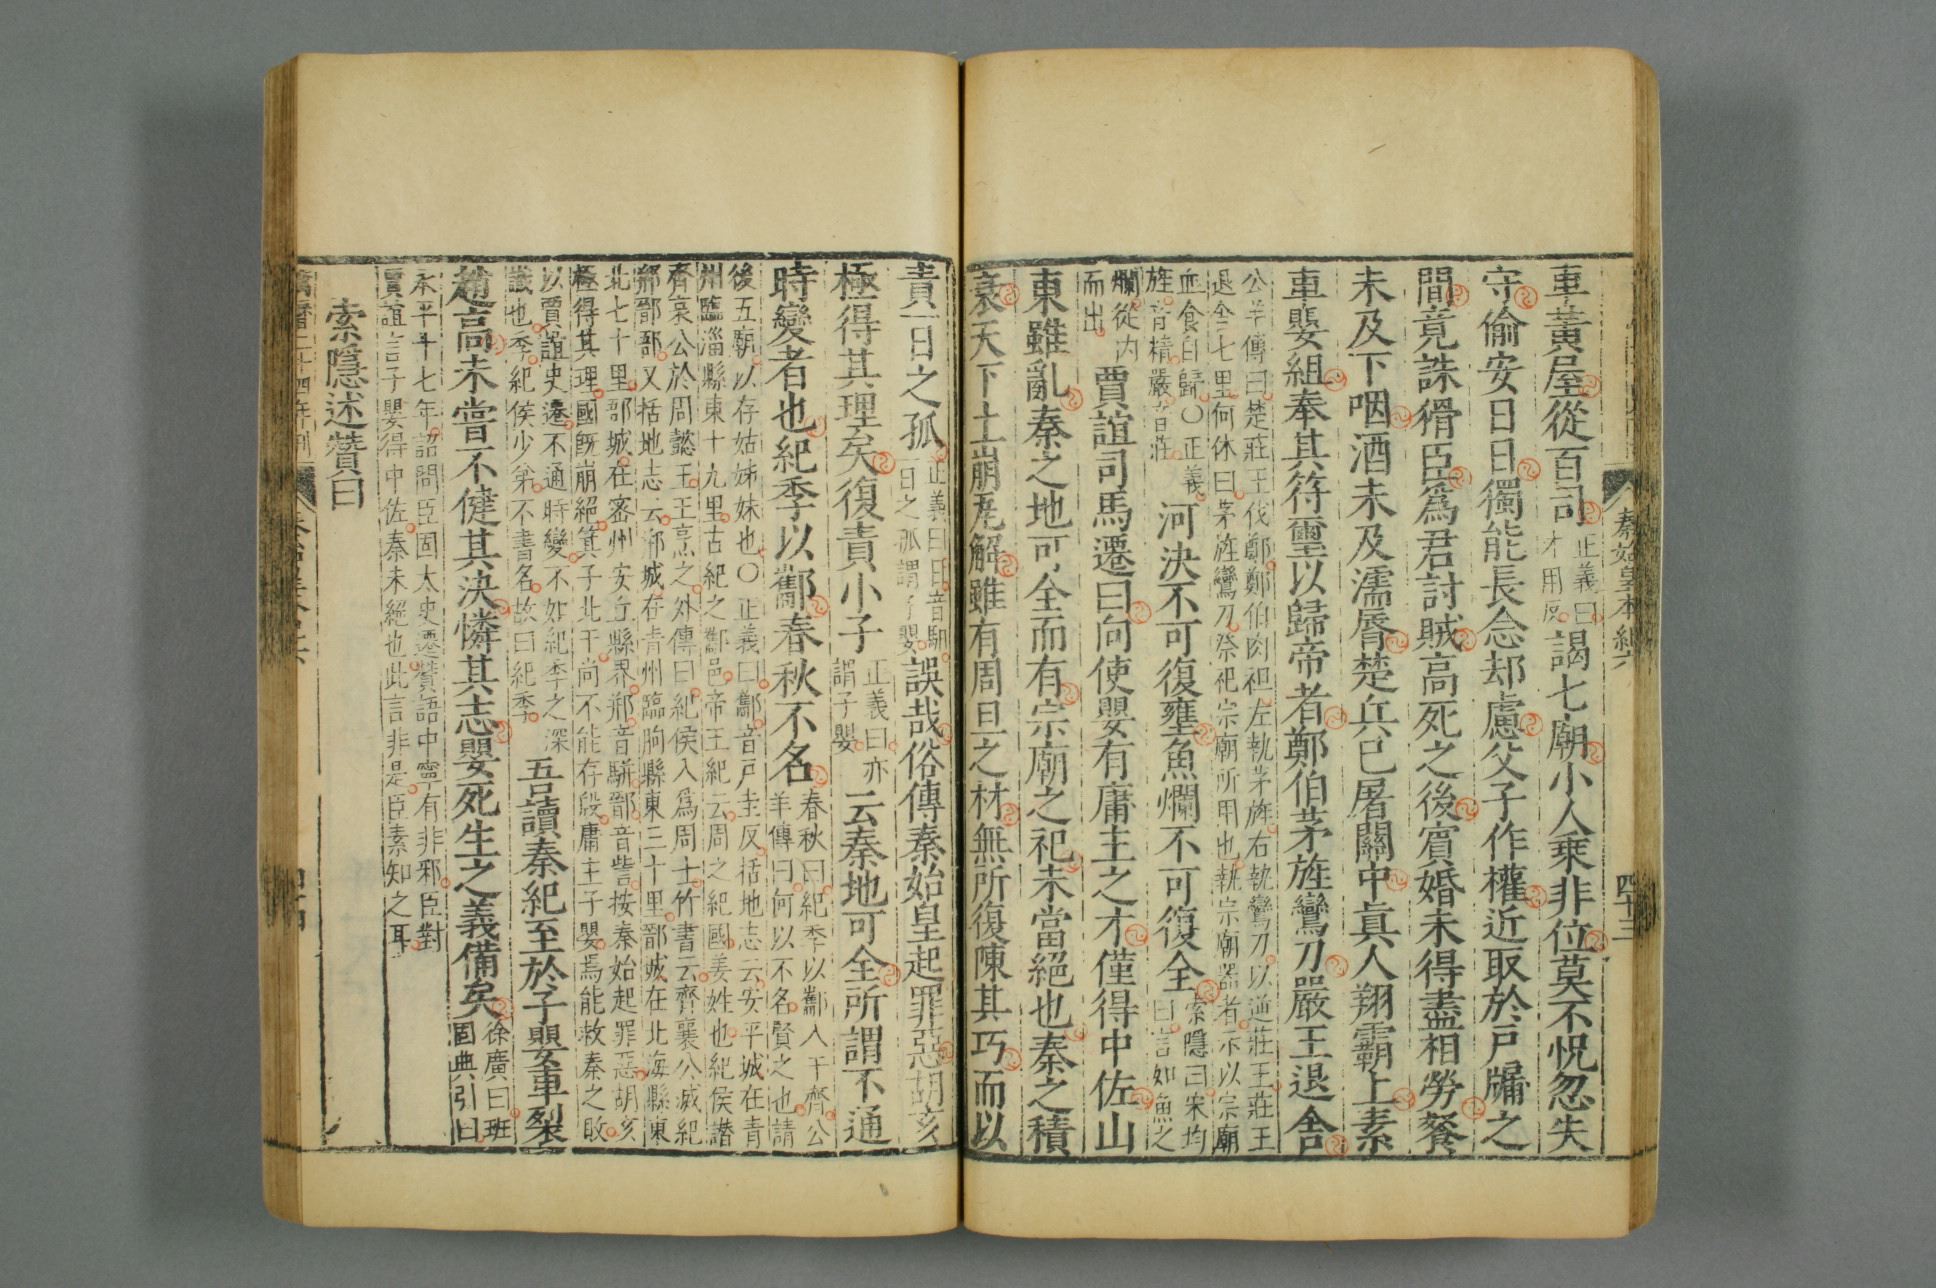 秦始皇本紀六
四十三
車黃屋從百司正義曰才用反謁七廟小人乘非位莫不怳忽失
守偷安日日獨能長念却慮父子作權近取於戶牖之
間竟誅猾臣爲君討賊高死之後賓婚未得盡相勞餐
未及下咽酒未及濡脣楚兵已屠關中眞人翔霸上素
車嬰組奉其符璽以歸帝者鄭伯茅旌鸞刀嚴王退舍
公羊傳曰楚莊王伐鄭鄭伯肉袒左執茅旌右執鸞刀以逆莊王莊王
退舍七里何休曰茅旌鸞刀祭祀宗廟所用也執宗廟器者示以宗廟
血食自歸○正義
旌音精嚴音莊
河決不可復壅魚爛不可復全索隱曰宋均曰言如魚之
爛從內而出賈誼司馬遷曰向使嬰有庸主之才僅得中佐山
東雖亂秦之地可全而有宗廟之祀未當絕也秦之積
衰天下土崩瓦解雖有周旦之材無所復陳其巧而以
責一日之孤正義曰日音馹日之孤謂子嬰誤哉俗傳秦始皇起罪惡胡亥
極得其理矣復責小子正義曰亦謂子嬰云秦地可全所謂不通
時變者也紀季以酅春秋不名春秋曰紀季以酅入于齊公羊傳曰何以不名賢之也請
後五廟以存姑姊妹也○正義曰酅音戶圭反括地志云安平城在青
州臨淄縣東十九里古紀之酅邑帝王紀云周之紀國姜姓也紀侯譖
齊哀公於周懿王王烹之外傳曰紀侯入爲周士竹書云齊襄公滅紀
郱鄑郚又括地志云郱城在青州臨朐縣東三十里鄑城在北海縣東
北七十里郚城在密州安丘縣界郱音駢鄑音訾按秦始起罪惡胡亥
極得其理國旣崩絕箕子北干尚不能存殷庸主子嬰焉能救秦之敗
以賈誼史遷不通時變不如紀季之深
識也季紀侯少弟不書名故曰紀季
吾讀秦紀至於子嬰車裂
趙高未嘗不健其決憐其志嬰死生之義備矣徐廣曰班固典引曰
永平十七年詔問臣固太史遷贊語中寧有非邪臣對
賈誼言子嬰得中佐秦未絕也此言非是臣素知之耳
索隱述贊曰
萬曆二十四年刊